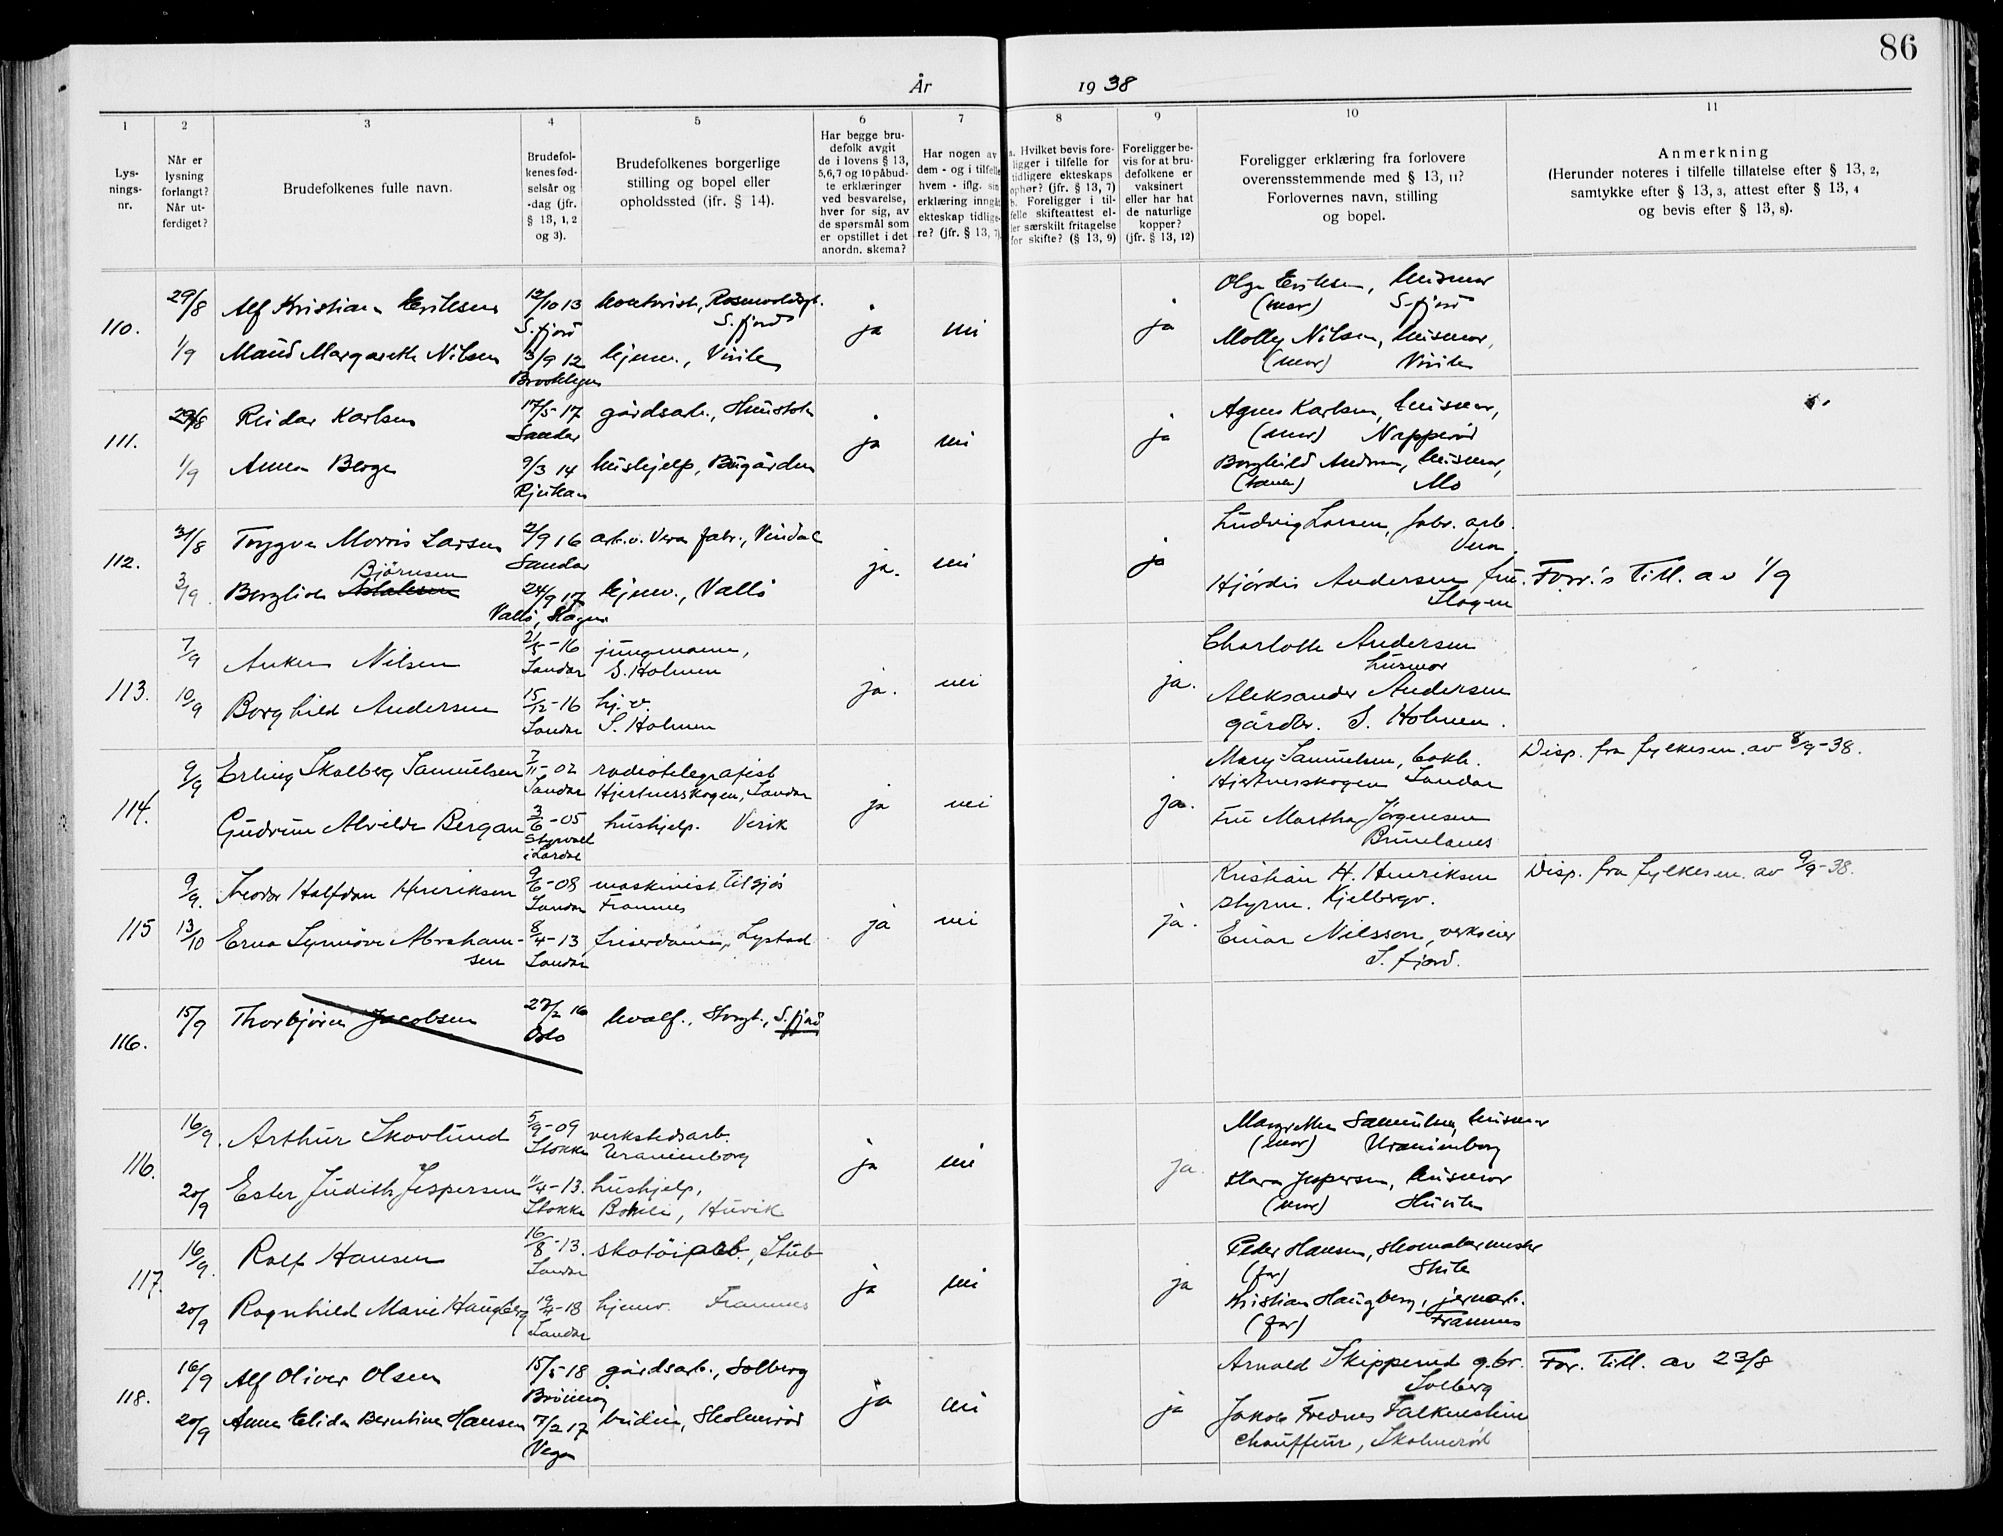 86
År 1938
1 2 3 4 5 6 7 8 9 10 11
Lysningsnr.
Når er lysning forlangt? Når utferdiget?
Brudefolkenes fulle navn.
Brudefolkenes fødselsår og -dag (jfr. § 13, 1, 2 og 3).
Brudefolkenes borgerlige stilling og bopel eller opholdssted (jfr. § 14).
Har begge brudefolk avgit de i lovens § 13, 5, 6, 7 og 10 påbudte erklæringer ved besvarelse, hver for sig, av de spørsmål som er opstillet i det anordn. skema?
Har nogen av dem - og i tilfelle hvem - iflg. sin erklæring inngått ekteskap tidligere? (jfr. § 13, 7).
a. Hvilket bevis foreligger i tilfelle for tidligere ekteskaps ophør? (jfr. § 13, 7)
b. Foreligger i tilfelle skifteattest eller særskilt fritagelse for skifte? (§ 13, 9)
Foreligger bevis for at brudefolkene er vaksinert eller har hat de naturlige kopper? (jfr. § 13, 12)
Foreligger erklæring fra forlovere overensstemmende med § 13, 11? Forlovernes navn, stilling og bopel.
Anmerkning
(Herunder noteres i tilfelle tillatelse efter § 13, 2, samtykke efter § 13, 3, attest efter § 13, 4 og bevis efter § 13, 8).
110. 29/8 Alf Kristian Eriksen 12/10 13 kontorist, S.fjord
S.fjord ja nei ja
Olga Eriksen, husmor
(mor) S.fjord
1/9 Maud Margarethe Nilsen 3/9 12 hjemv., Virik
Brooklyn
Molly Nilsen, husmor,
(mor) Virik
111. 29/8 Reidar Karlsen 17/5-17 gårdsarb.,
Sandar ja nei ja
Agnes Karlsen, husmor,
(mor) Napperød
1/9 Anna Berge 9/3 14 hushjelp, Bugården
Rjukan
Borghild Andersen, husmor,
Mo
112. 31/8 Trygve Morris Larsen 2/9 16 arb. v. Vera fabr., Vindal
Sandar ja. nei ja
Ludvig Larsen, fabr. arb.
Vera
3/9 Bergliot Bjørnsen 24/9 17 hjemv., Valló
Valló, Slagen
Hjördis Andersen fru.
Slagen
Forr.'s Till. av 1/9
113. 7/9 Anker Nilsen 21/5-16 jungmann,
Sandar S. Holmen ja. nei ja.
Charlotte Andersen
husmor
10/9 Borghild Andersen 15/12-16 hj. v.
Sandar S. Holmen
Aleksander Andersen
gårdbr. S. Holmen.
114. 9/9 Erling Skalberg Samuelsen 7/11-02 radiotelegrafist
Sandar Hjertnesskogen, Sandar ja nei ja.
Mary Samuelsen, bokh.
Hjertnesskogen Sandar
Disp. fra fylkesm. av 8/9-38.
Gudrun Alvilde Bergan 3/6-05 hushjelp. Virik
Styrvoll
i Lardal
Fru Martha Jørgensen
Brunlanes
115 9/9. Teodor Halfdan Henriksen 9/6-08 maskinist, til sjøs
Sandar Framnes ja nei ja.
Kristian H. Henriksen
styrm. Kjellbergv.
Disp. fra fylkesm. av 9/9-38.
13/10 Erna Synnöve Abraham-
sen 8/4-13 friserdame, Lystad
Sandar
Einar Nilsson, verkseier
S. fjord.
116. 15/9 Thorbjörn Jacobsen 27/2 16 hvalf., Storgt., S.fjord
Oslo
116. 16/9. Arthur Skovlund 5/9-09 verkstedsarb.
Stokke Uranienborg ja nei ja.
Margrethe Samuelsen, husmor
(mor) Uranienborg
20/9 Ester Judith Jespersen 11/4-13. hushjelp,
Stokke , Huvik
Klara Jespersen, husmor
(mor) Huvik
117. 16/9. Rolf Hansen 16/8-13. skotöiarb., Stub
Sandar ja nei ja
Peder Hansen, skomakermester
(far)
20/9 Ragnhild Marie Haugberg 19/4-18 hjemv. Framnes
Sandar
Kristian Haugberg, jernarb.
(far) Framnes
118. 16/9 Alf Oliver Olsen 15/5-18 gårdsarb., Solberg
Brönnöy ja nei ja
Arnold Skipperud g.br.
Solberg
For. Till. av 23/8
20/9 Anna Elida Berntine Hansen 7/2 17 budeie, Skolmerød
Vega
Jakob Frednes Falkensteen
chauffeur, Skolmerød